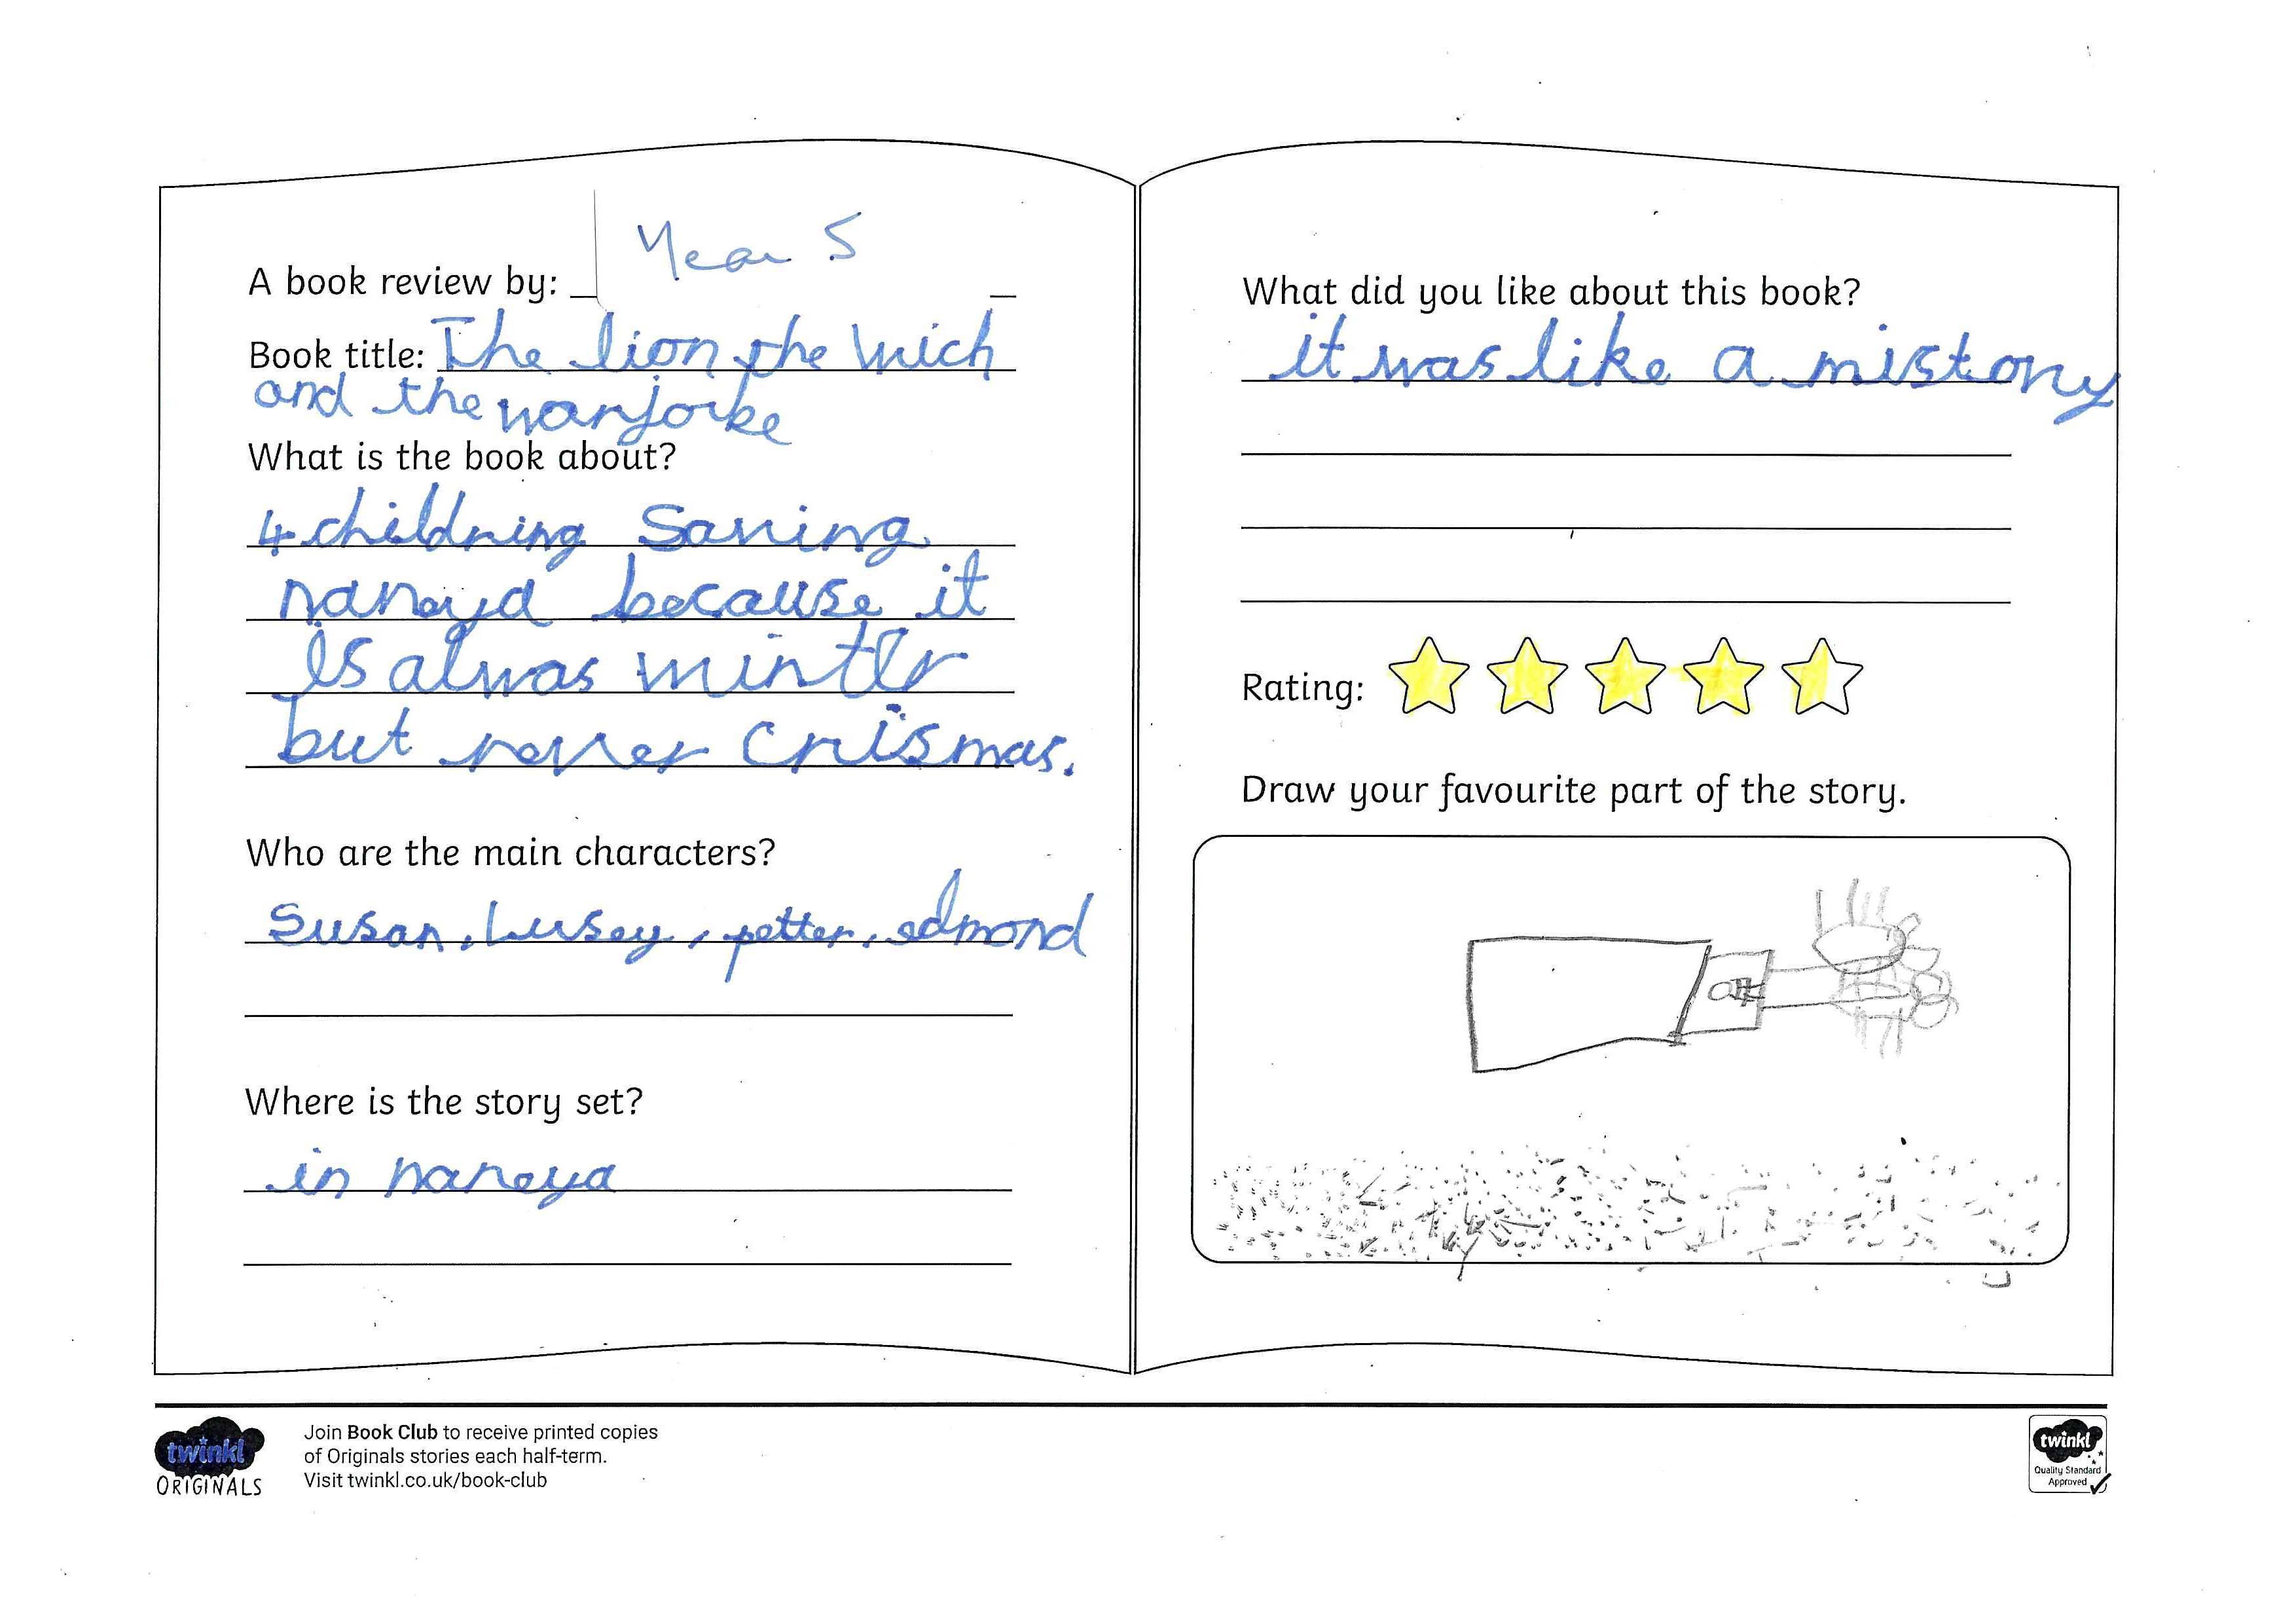 A book review by: Year 5
Book title: The lion the wich
and the warjorbe
What is the book about?
4 childring saving
nareya because it
is alwas wintlr
but never crismas.
Who are the main characters?
Susan, Lusey, petter, edmond
Where is the story set?
in nareya
What did you like about this book?
it was like a mistory
Rating:
Draw your favourite part of the story.
twinkl
ORIGINALS
Join Book Club to receive printed copies
of Originals stories each half-term.
Visit twinkl.co.uk/book-club
twinkl
Quality Standard
Approved